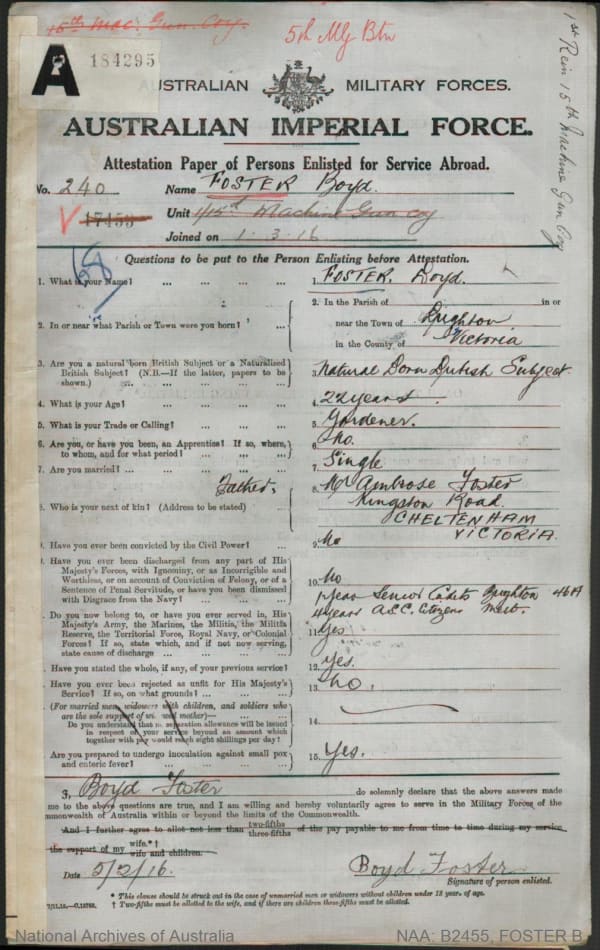 15th Mac. Gun. Coy.
5th Mg Btn
1st Rein 15th Machine Gun Coy
A
184295
AUSTRALIAN MILITARY FORCES.
AUSTRALIAN IMPERIAL FORCE.
Attestation Paper of Persons Enlisted for Service Abroad.
No. 240 Name FOSTER Boyd.
17453 Unit 1/15th Machine Gun Coy
Joined on 1.3.16
Questions to be put to the Person Enlisting before Attestation.
1. What is your Name? ... ... ... ... 1. FOSTER. Boyd.
2. In or near what Parish or Town were you born? ... 2. In the Parish of in or
near the Town of Brighton
in the County of Victoria
3. Are you a natural born British Subject or a Naturalised
British Subject? (N.B.—If the latter, papers to be
shown.) ... ... ... ... 3. Natural Born British Subject
4. What is your Age? ... ... ... ... 4. 22 years.
5. What is your Trade or Calling? ... ... ... 5. Gardener.
6. Are you, or have you been, an Apprentice? If so, where,
to whom, and for what period? ... ... ... 6. No.
7. Are you married? ... ... ... ... 7. Single
Father.
8. Who is your next of kin? (Address to be stated) ... 8. Mr Ambrose Foster
Kingston Road.
CHELTENHAM
VICTORIA.
. Have you ever been convicted by the Civil Power? ... 9. No
. Have you ever been discharged from any part of His
Majesty's Forces, with Ignominy, or as Incorrigible and
Worthless, or on account of Conviction of Felony, or of a
Sentence of Penal Servitude, or have you been dismissed
with Disgrace from the Navy? ... ... ... 10. No
1 year Senior Cadets Brighton 46A
4 years A.S.C. Citizens Melb.
. Do you now belong to, or have you ever served in, His
Majesty's Army, the Marines, the Militia, the Militia
Reserve, the Territorial Force, Royal Navy, or Colonial
Forces? If so, state which, and if not now serving,
state cause of discharge ... ... ... 11. Yes
Have you stated the whole, if any, of your previous service? 12. Yes.
Have you ever been rejected as unfit for His Majesty's
Service? If so, on what grounds? ... ... ... 13. No.
(For married men, widowers with children, and soldiers who
are the sole support of widowed mother)—
Do you understand that no separation allowance will be issued
in respect of your service beyond an amount which
together with pay would reach eight shillings per day? 14.
Are you prepared to undergo inoculation against small pox
and enteric fever? ... ... ... ... 15. Yes.
I, Boyd Foster do solemnly declare that the above answers made
me to the above questions are true, and I am willing and hereby voluntarily agree to serve in the Military Forces of the
mmonwealth of Australia within or beyond the limits of the Commonwealth.
And I further agree to allot not less than two-fifths three-fifths of the pay payable to me from time to time during my service
the support of my wife.*† wife and children.
Date 5/2/16. Boyd Foster
Signature of person enlisted.
* This clause should be struck out in the case of unmarried men or widowers without children under 18 years of age.
† Two-fifths must be allotted to the wife, and if there are children three-fifths must be allotted.
7/11.15.—C.13762.
National Archives of Australia NAA: B2455, FOSTER B